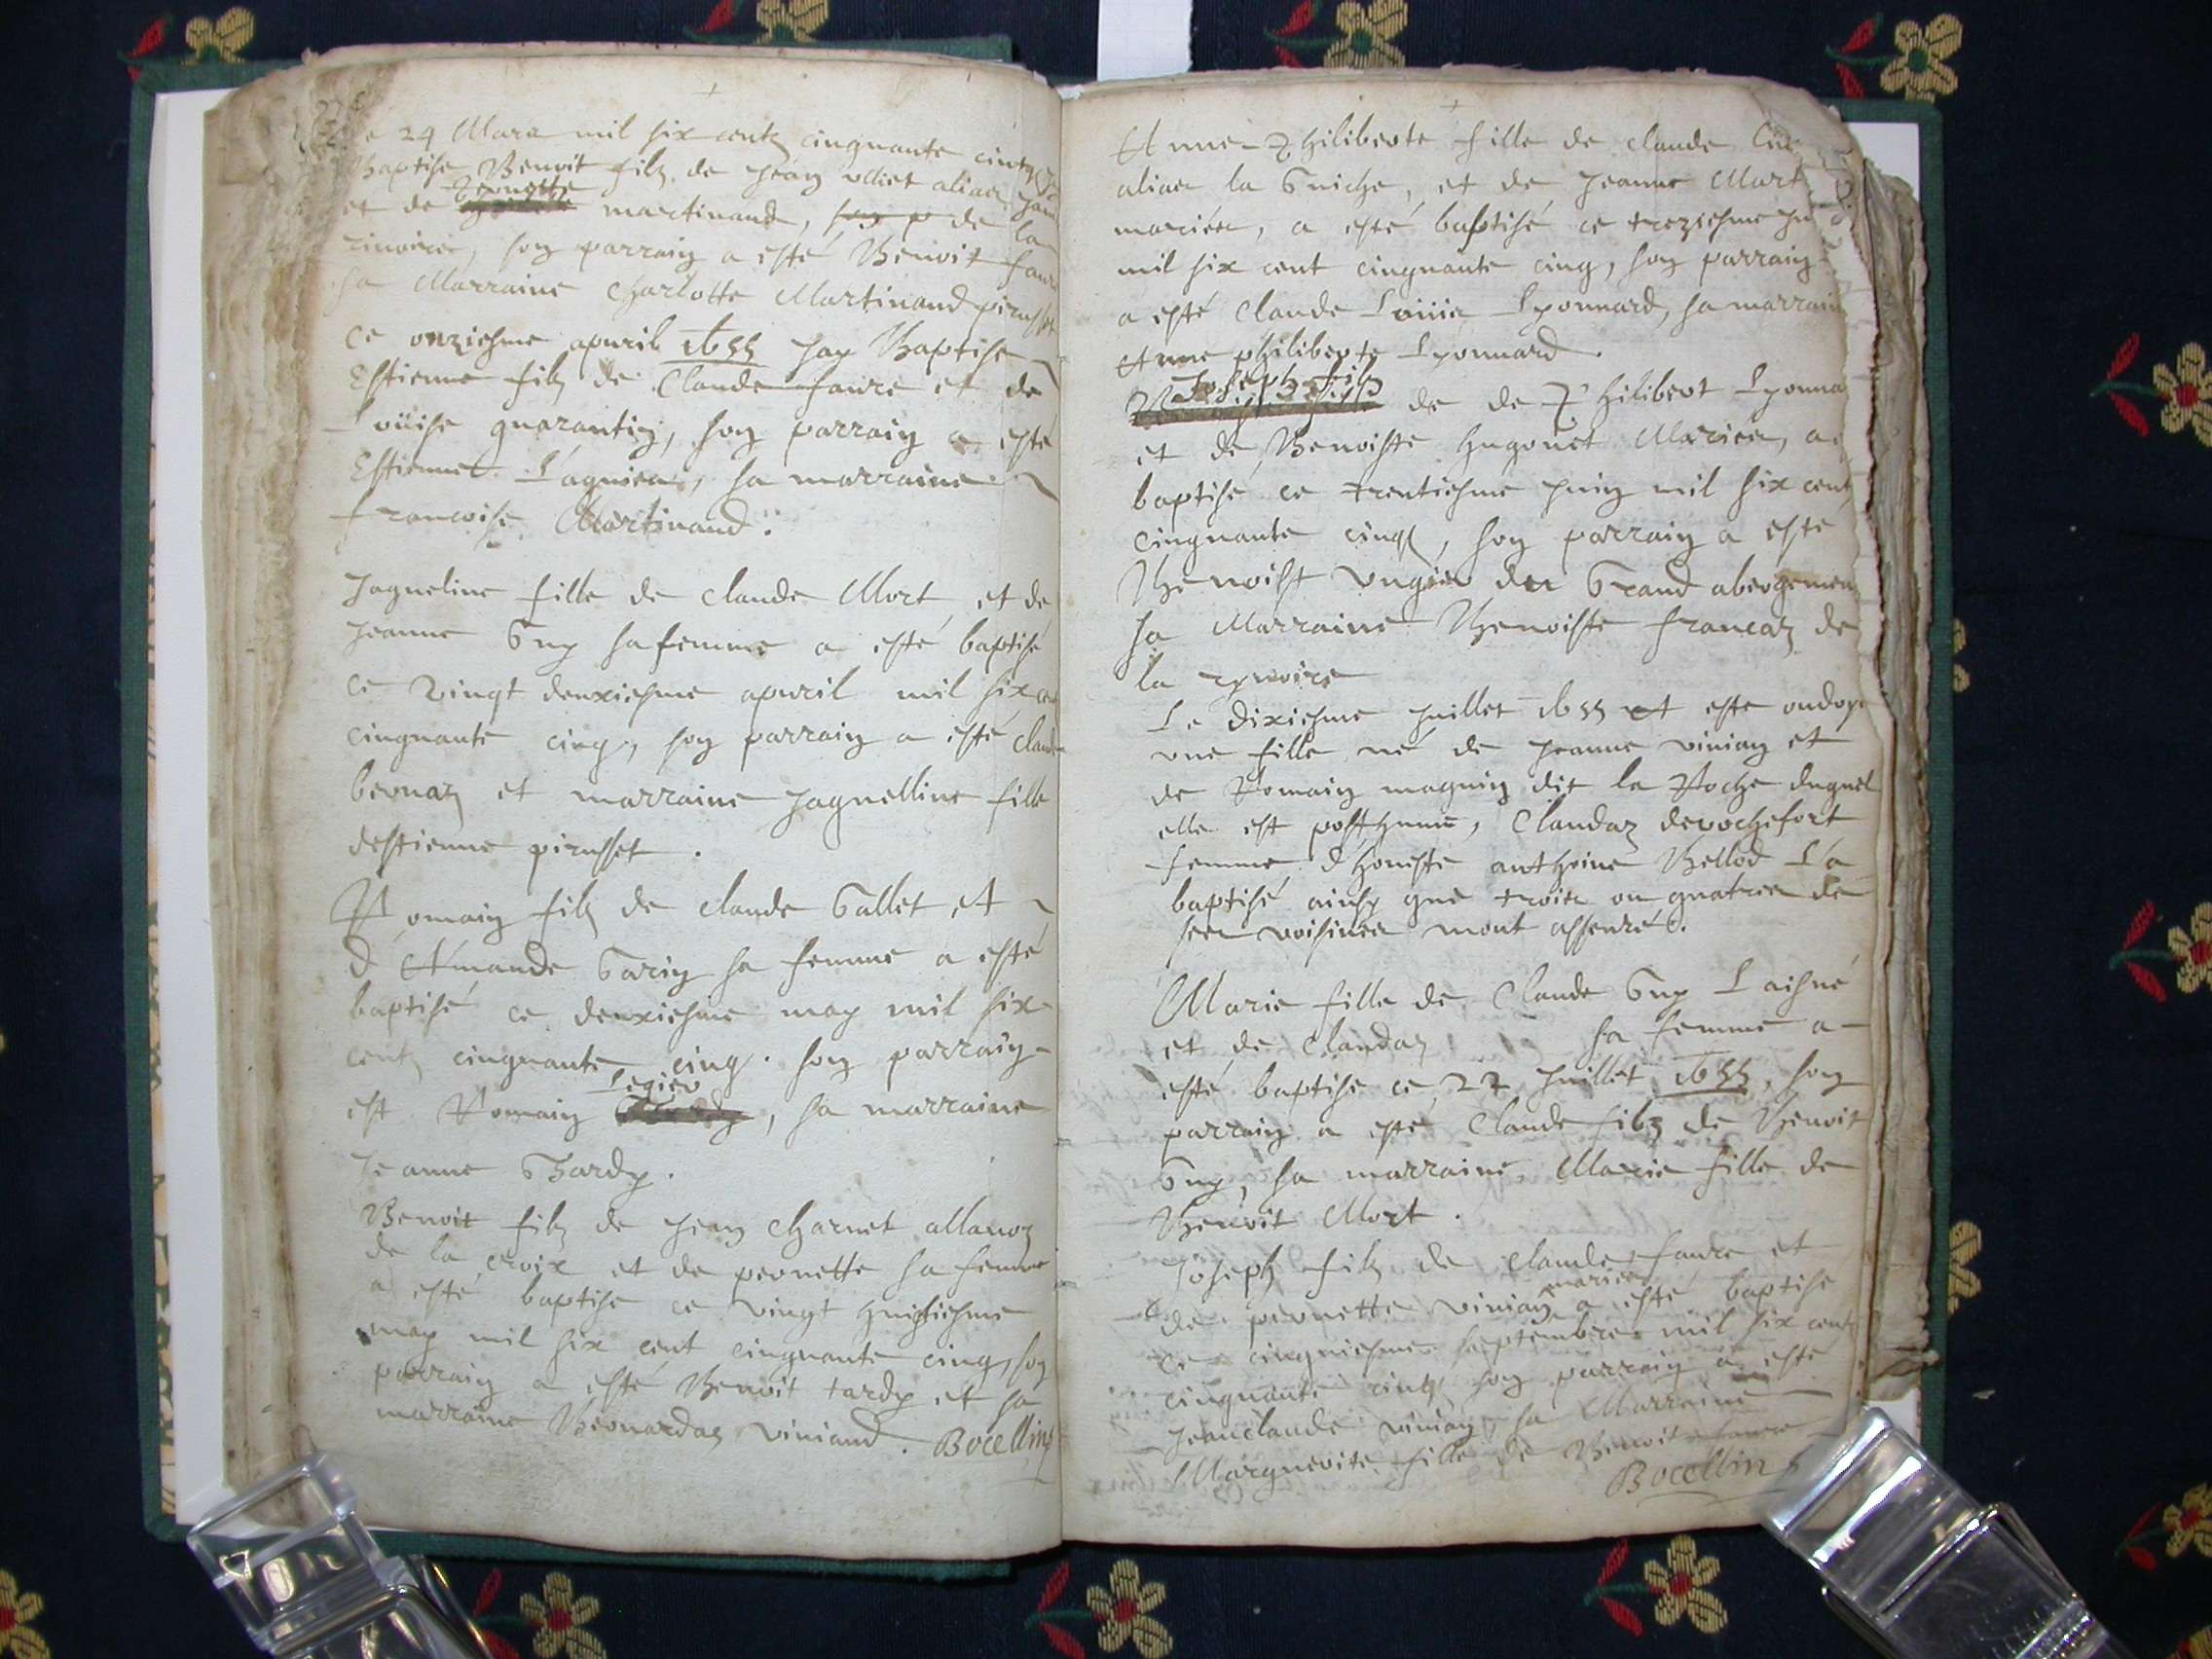 24 Mars mil six centz cinquante cinq
Baptise Benoit filz de Jean alias
Pernette
et de martinand, de la
rivoire, son parrain a esté Benoit faure
sa Marraine Charlotte Martinand pirusset
Ce onziesme apuril 1655 Jay Baptise
Estienne filz de Claude faure et de
Loüise quarantin, son parrain a esté
Estienne Lagnieu, sa marraine
francoise Martinand.
Jaqueline fille de claude Mort et de
Jeanne Guy sa femme a esté baptisé
ce vingt deuxiesme apuril mil six cent
cinquante cinq, son parrain a esté claude
bernaz et marraine Jaquelline fille
destienne pirusset.
Romain filz de claude Gallet et
d'Amande Garin sa femme a esté
baptisé ce deuxiesme may mil six
centz cinquante cinq. son parrain
Legier
est Romain , sa marraine
Jeanne Thardy.
Benoit filz de Jean Charnet allanoz
de la croix et de pernette sa femme
a esté baptise ce vingt huictiesme
may mil six cent cinquante cinq, son
parrain a esté Benoit tardy et sa
marraine Bernardaz viniand. Bocellin
Anne Philiberte fille de claude
alias la Guiche, et de Jeanne Mort
mariés, a esté baptisé ce treziesme
mil six cent cinquante cinq, son parrain
a esté Claude Loüis Lyonnard, sa marraine
Anne philiberte Lyonnard.
Joseph filz
de de Philibert Lyonna
et de Benoiste hugonet Mariés, a
baptisé ce trentiesme Juin mil six centz
cinquante cinq, son parrain a esté
Benoist du Grand abergemen
sa Marraine Benoiste francaz de
la ryvoire
Le dixiesme Juillet 1655 a esté ondoye
une fille né de Jeanne vinian et
de Romain magnin dit la Roche duquel
elle est posthume, Claudaz derochefort
femme d'honeste anthoine Bellod L'a
baptisé ainsy que trois ou quatres de
ses voisines mont asseuré.
Marie fille de Claude Guy Laisné
et de Claudaz sa femme a
esté baptise ce 22 Juillet 1655, son
parrain a esté Claude filz de Benoit
Guy, sa marraine, Marie fille de
Benoit Mort.
Joseph filz de claude faure et
mariés
de pernette vinian a esté baptise
Ce cinquiesme septembre mil six centz
cinquante cinq son parrain a esté
Jeanclaude vinian sa Marraine
Marguerite fille de Benoit faure
Bocellin